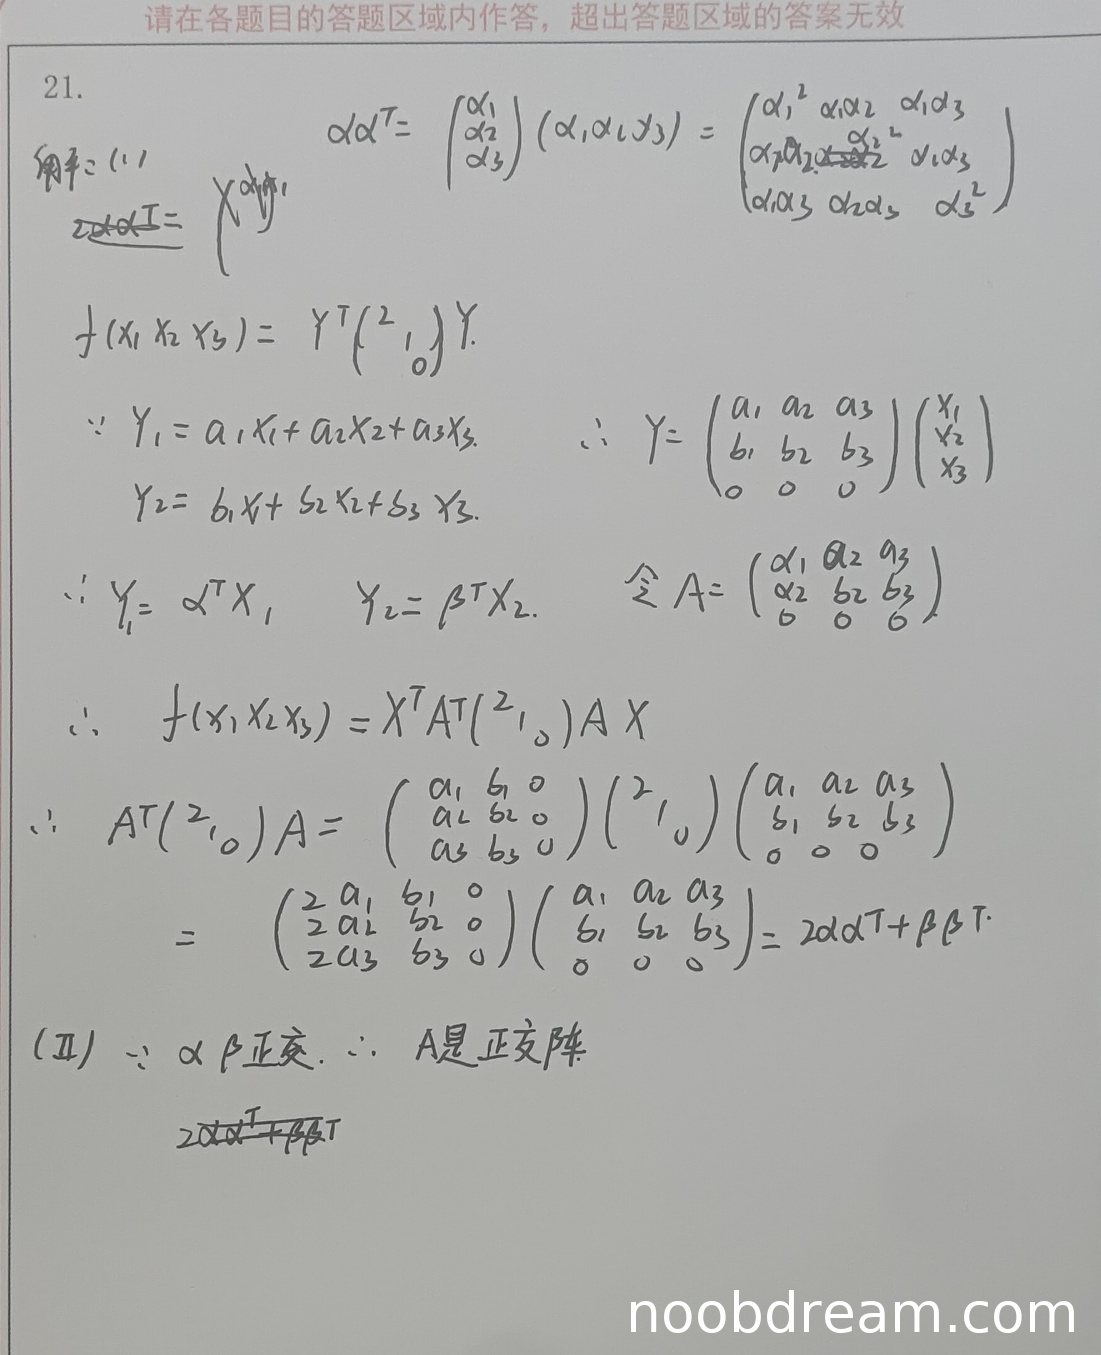 请在各题目的答题区域内作答，超出答题区域的答案无效
21.
解：(1)
αα^T = (α₁ α₂ α₃) (α₁ α₂ α₃) = (α₁² α₁α₂ α₁α₃
α₁α₂ α₂² α₂α₃
α₁α₃ α₂α₃ α₃²)
2αα^T =
f(x₁ x₂ x₃) = Y^T (2 1 0) Y.
∵ Y₁ = a₁x₁ + a₂x₂ + a₃x₃. ∴ Y = (a₁ a₂ a₃
b₁ b₂ b₃
0 0 0) (x₁ x₂ x₃)
Y₂ = b₁x₁ + b₂x₂ + b₃x₃.
∴ Y₁ = α^T X₁ Y₂ = β^T X₂. 令 A = (α₁ a₂ a₃
α₂ b₂ b₃
0 0 0)
∴ f(x₁ x₂ x₃) = X^T A^T (2 1 0) A X
∴ A^T (2 1 0) A = (a₁ b₁ 0
a₂ b₂ 0
a₃ b₃ 0) (2 1 0) (a₁ a₂ a₃
b₁ b₂ b₃
0 0 0)
= (2a₁ b₁ 0
2a₂ b₂ 0
2a₃ b₃ 0) (a₁ a₂ a₃
b₁ b₂ b₃
0 0 0) = 2αα^T + ββ^T.
(II) ∵ α β正交. ∴ A是正交阵
2αα^T + ββ^T
noobdream.com